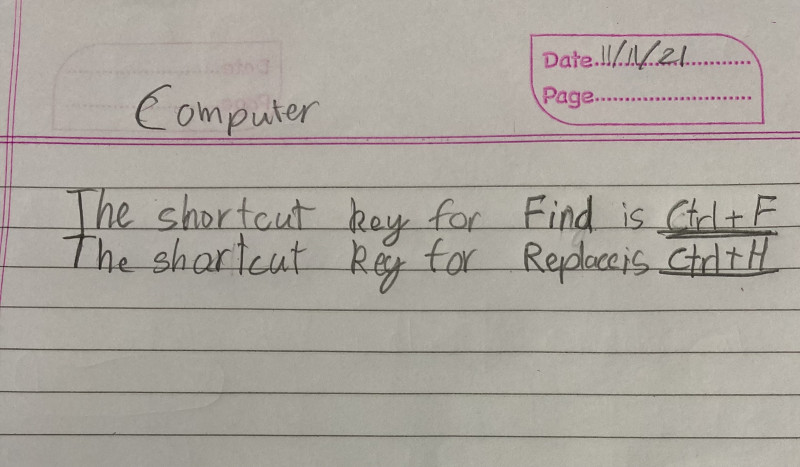 Date..11/11/21............
Page..............................
Computer
The shortcut key for Find is Ctrl+F
The shortcut key for Replace is Ctrl+H